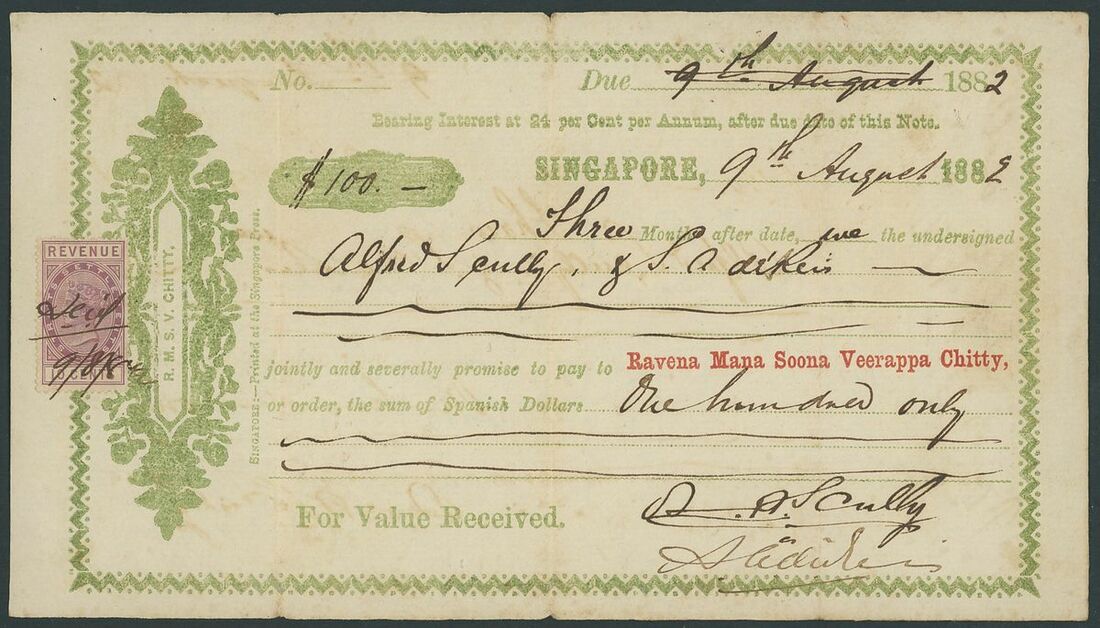 No. Due 9th August 1882
Bearing Interest at 24 per Cent per Annum, after due date of this Note.
$100.—
SINGAPORE, 9th August 1882
Three Months after date, we the undersigned
Alfred Scully, & S.
jointly and severally promise to pay to Ravena Mana Soona Veerappa Chitty,
or order, the sum of Spanish Dollars One hundred only
For Value Received.
A. Scully
R. M. S. V. CHITTY.
SINGAPORE:—Printed at the Singapore Press.
REVENUE
9/8/82